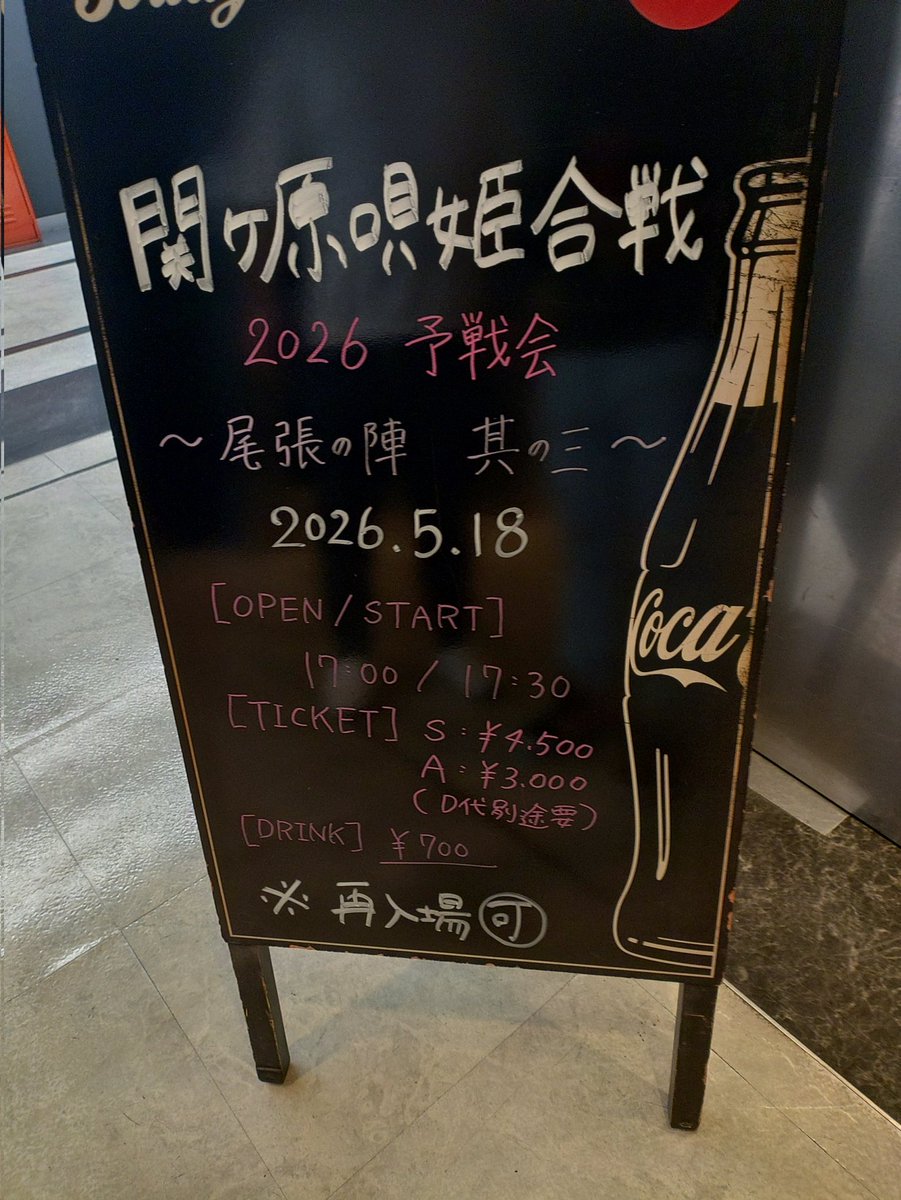 関ヶ原唄姫合戦
2026 予戦会
～尾張の陣 其の三～
2026.5.18
[OPEN/START]
17:00 / 17:30
[TICKET] S:¥4.500
A:¥3.000
(D代別途要)
[DRINK] ¥700
※ 再入場可
Coca